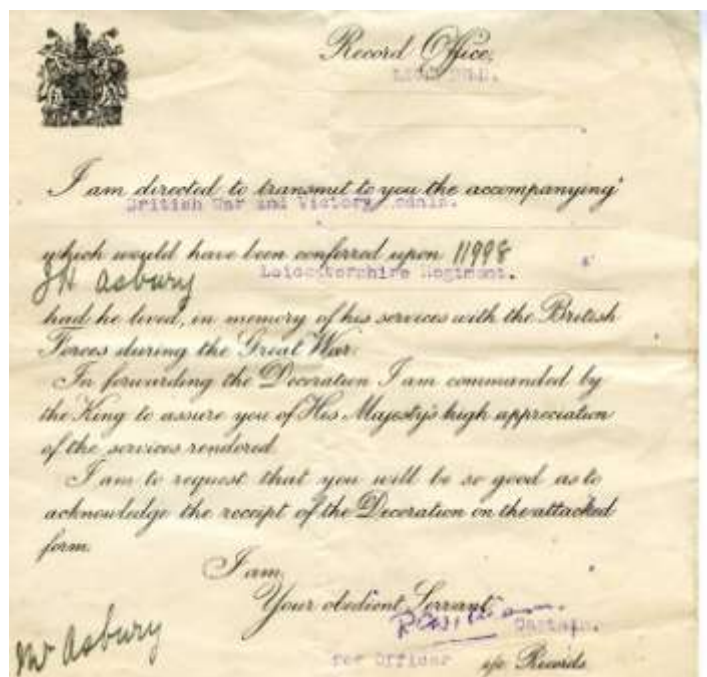 Record Office,
I am directed to transmit to you the accompanying
British War and Victory Medals.
which would have been conferred upon 11998
JH Asbury Leicestershire Regiment.
had he lived, in memory of his services with the British
Forces during the Great War.
In forwarding the Decoration I am commanded by
the King to assure you of His Majesty's high appreciation
of the services rendered.
I am to request that you will be so good as to
acknowledge the receipt of the Decoration on the attached
form.
I am,
Your obedient Servant,
Captain.
for Officer i/c Records
Mr Asbury